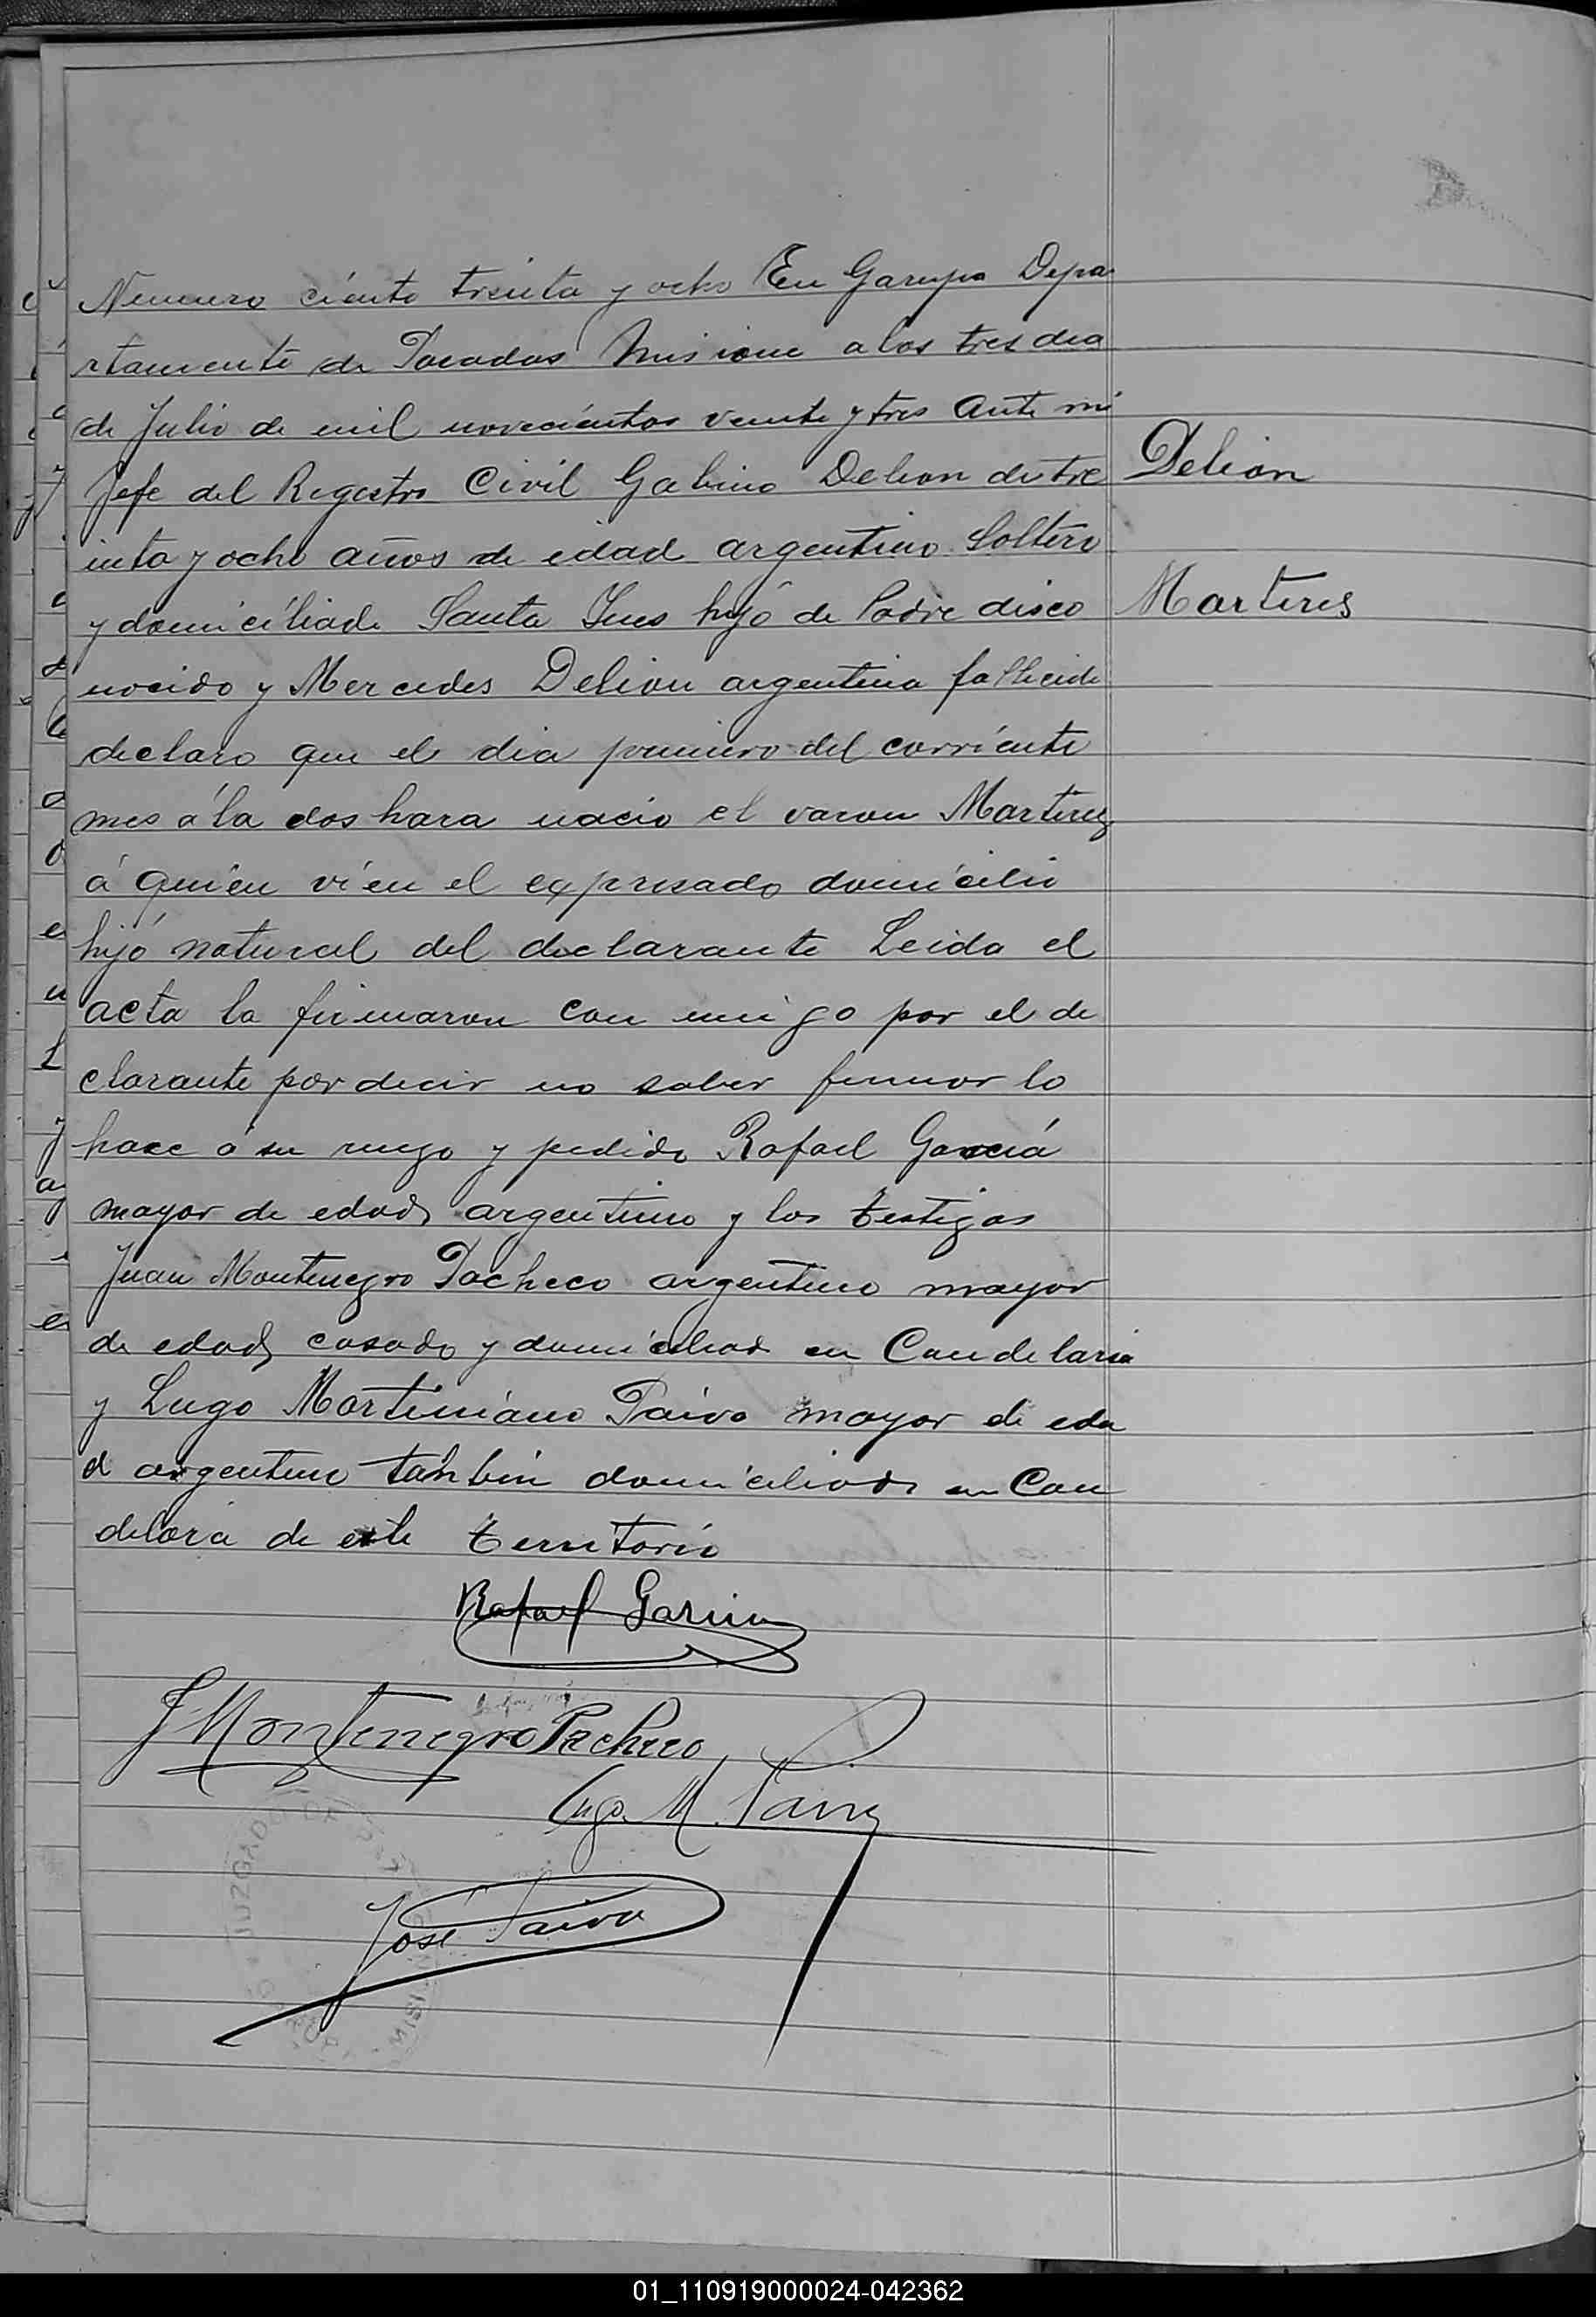 Numero ciento treinta y ocho En Garupa Depa
rtamento de Posadas Misione a los tres dia
de Julio de mil novecientos veinte y tres ante mi
Jefe del Registro Civil Gabino Delion de tre
inta y ocho años de edad argentino Soltero
y domiciliado Santa Ines hijo de Padre disco
nocido y Mercedes Delion argentina fallecida
declaro que el dia primero del corriente
mes a la dos hara nacio el varon Martires
á quien vi en el expresado domicilio
hijo natural del declarante Leida el
acta la firmaron con migo por el de
clarante por decir no saber firmar lo
hace a su ruego y pedido Rafael Garcia
mayor de edad argentino y los testigos
Juan Montenegro Pacheco argentino mayor
de edad casado y domiciliado en Candelaria
y Lugo Martiniano Paiva mayor de eda
d argentino tanbin domiciliado en Can
delaria de este territorio
Delion
Martires
Rafael Garcia
J Montenegro Pacheco
Lugo M. Paiva
José Paiva
JUZGADO DE
MISIONES
01_110919000024-042362